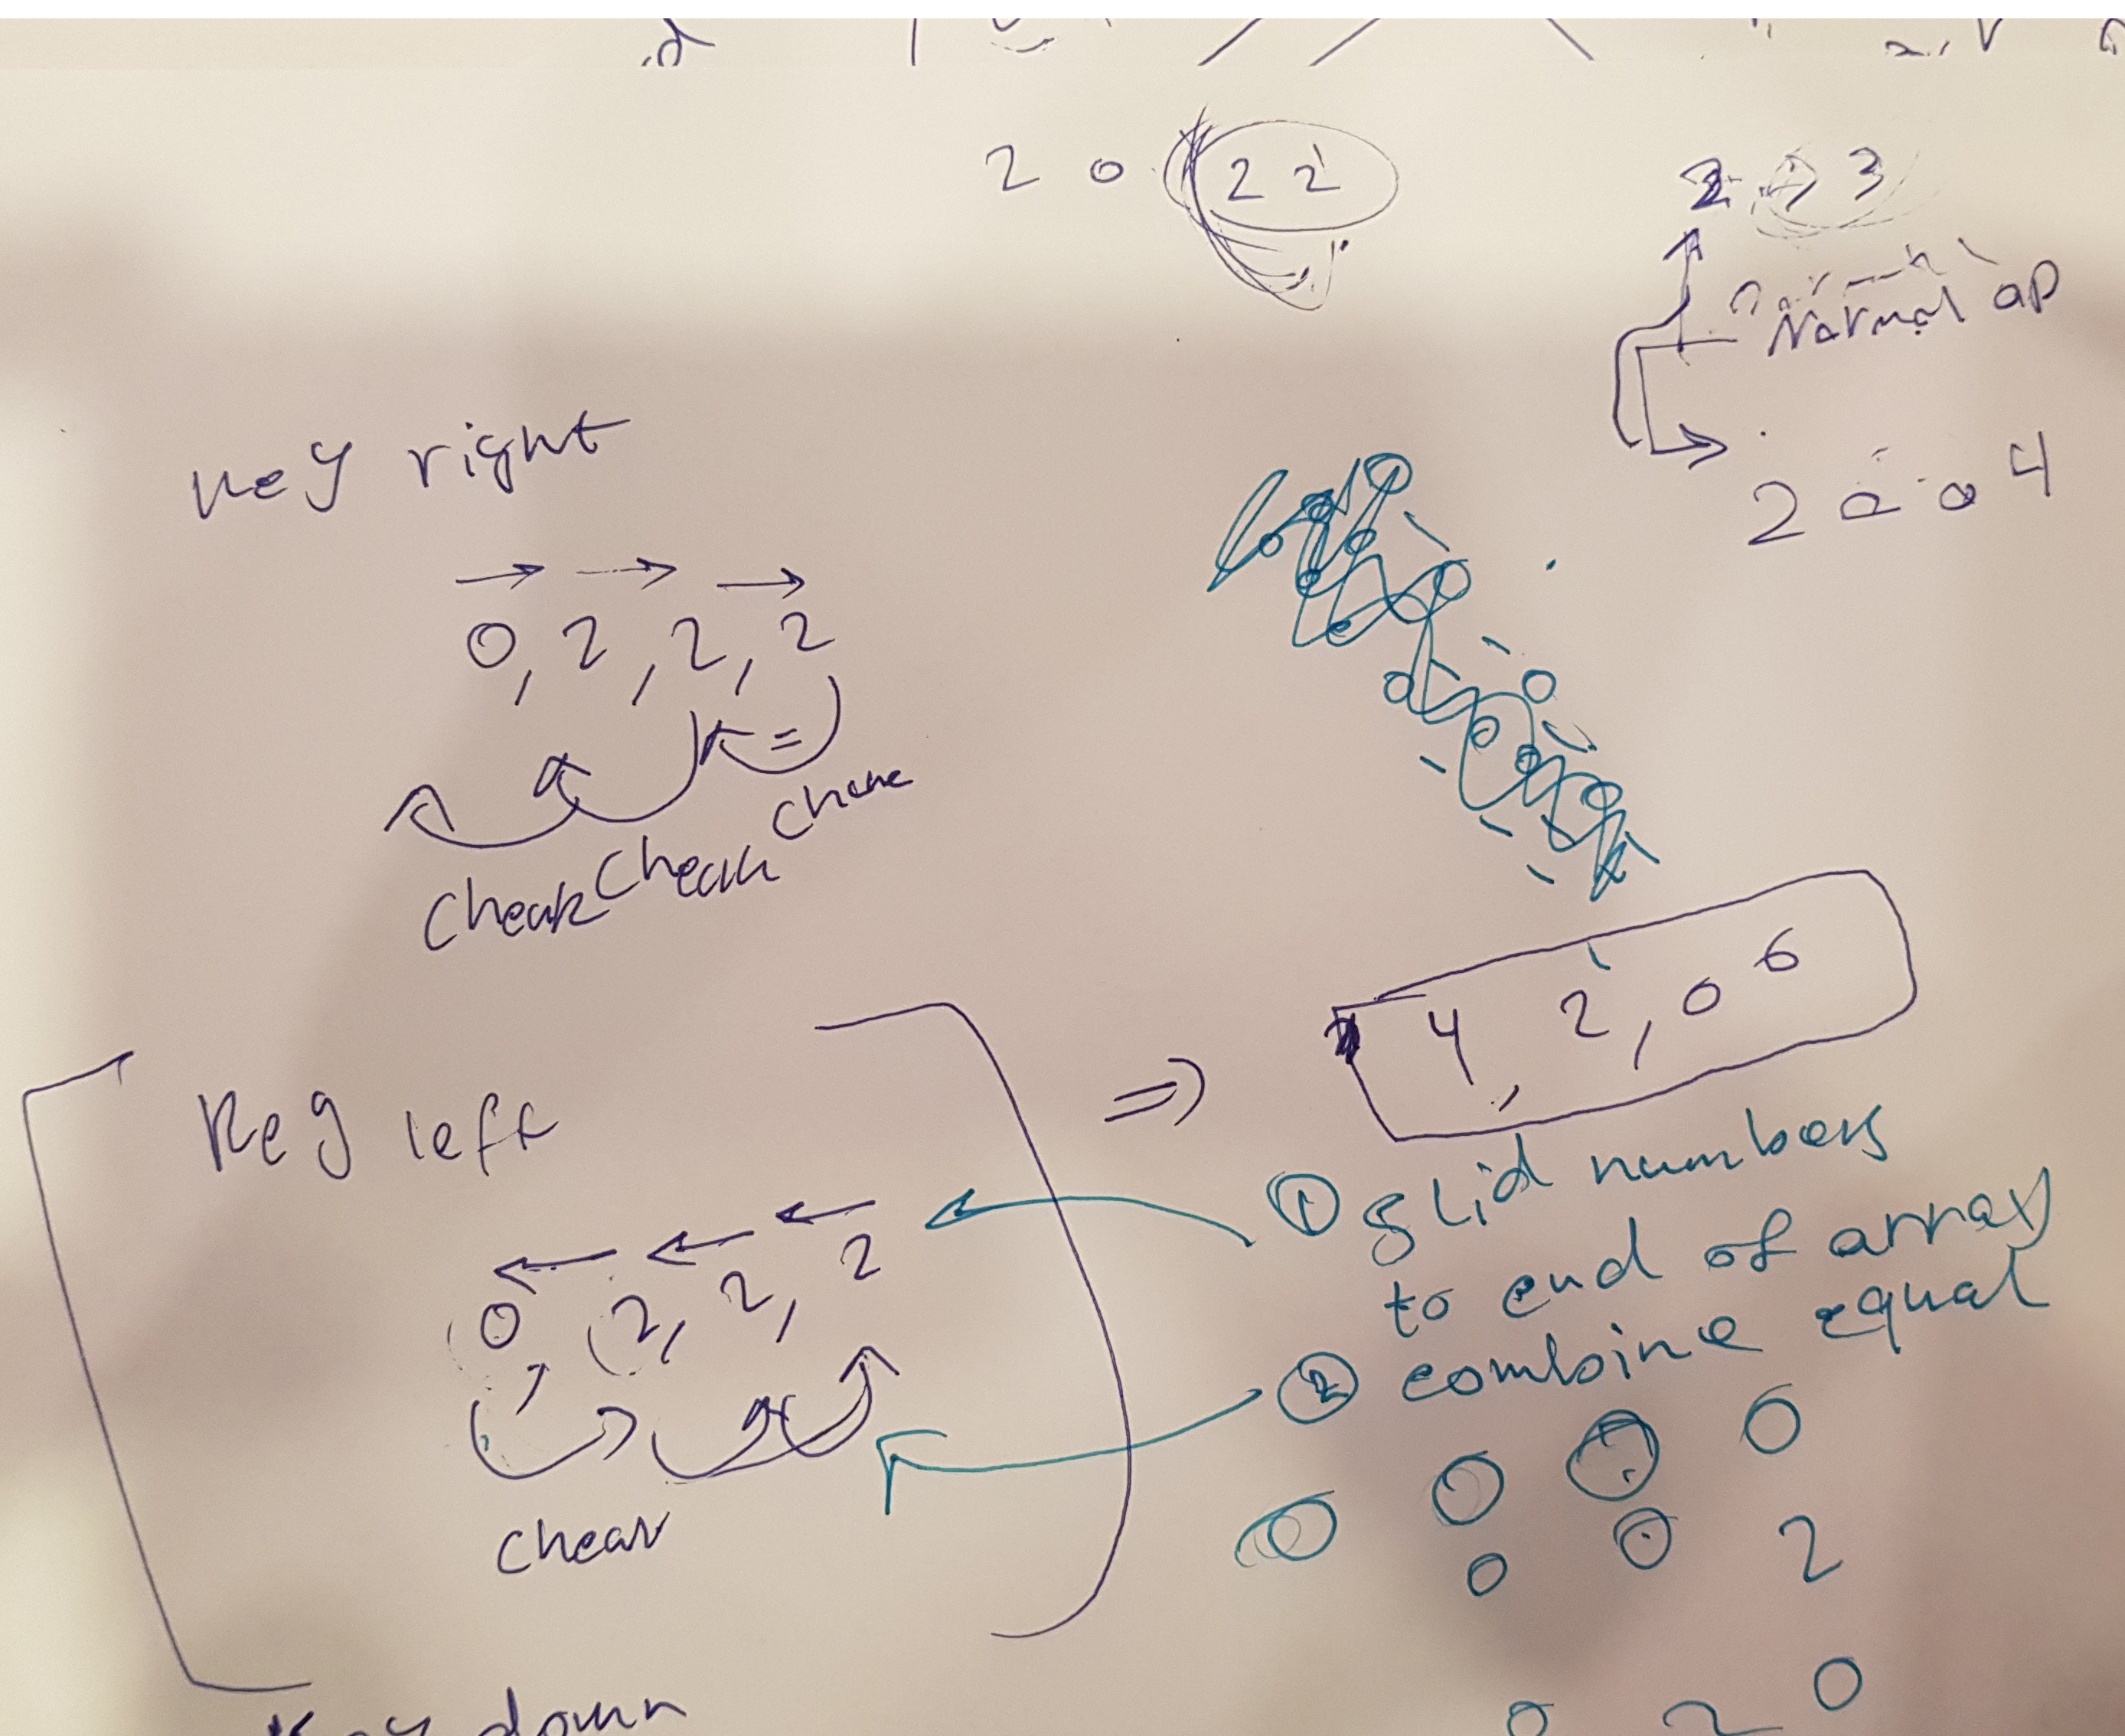 2 0 2 2
3
Normal
2 0 0 4
Key right
0, 2, 2, 2
=
Cheak Cheak
4, 2, 0 6
Key left
0, 2, 2, 2
Cheak
① glid numbers
to end of array
② combine equal
0 0 0 0
0 0 2
0 2 0
Key down